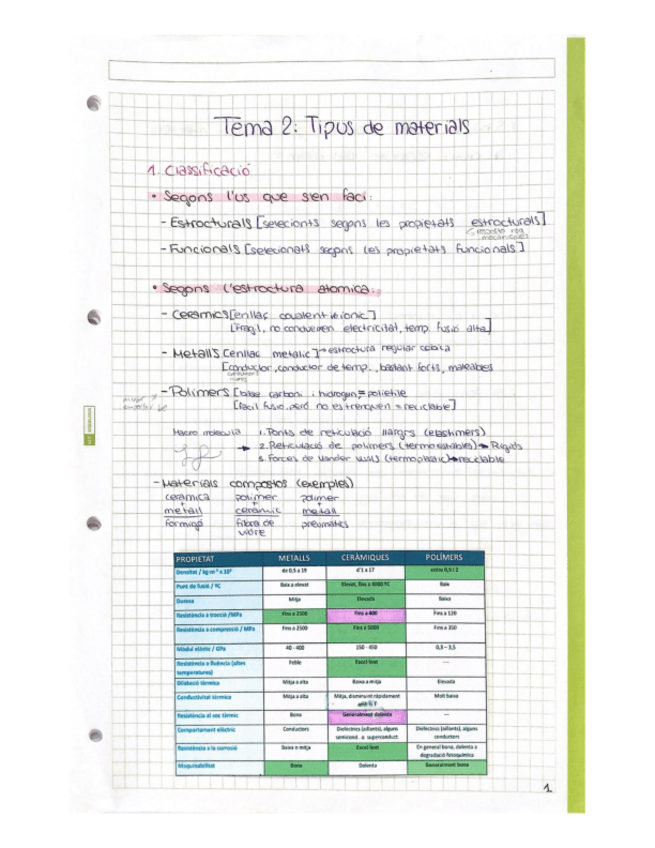 Tema 2: Tipus de materials
1. Classificació
• Segons l'us que s'en faci:
- Estructurals [selecionts segons les propietats estructurals]
- Funcionals [selecionats segons les propietats funcionals]
• Segons l'estructura atomica:
- Ceramics [enllaç covalent i ionic]
[Fragil, no condueixen electricitat, temp. fusió alta]
- Metalls [enllaç metalic] → estructura regular cubica
[conductor, conductor de temp., bastant forts, maleables
- Polimers [base carboni i hidrogen = polietilè
[facil fusio, però no es trenquen = reciclable]
Macro molecula
1. Ponts de reticulació llargs (elastimers)
2. Reticulació de polimers (termoestables) → Rigids
3. Forces de Vander Walls (termoplastic) → reciclable
- Materials compostos (exemples)
ceramica polimer polimer
+ + +
metall ceramic metall
formigó fibra de pneumatics
vidre
PROPIETAT METALLS CERÀMIQUES POLÍMERS
Densitat / kg·m⁻³ x 10³ de 0,5 a 19 d'1 a 17 entre 0,9 i 2
Punt de fusió / ºC Baix a elevat Elevat, fins a 4000 ºC Baix
Duresa Mitja Elevada Baixa
Resistència a tracció /MPa Fins a 2500 Fins a 400 Fins a 120
Resistència a compressió / MPa Fins a 2500 Fins a 5000 Fins a 350
Mòdul elàstic / GPa 40 - 400 150 - 450 0,3 – 3,5
Resistència a fluència (altes Feble Excel·lent ---
temperatures)
Dilatació tèrmica Mitja a alta Baixa a mitja Elevada
Conductivitat tèrmica Mitja a alta Mitja, disminuint ràpidament Molt baixa
amb la T
Resistència al xoc tèrmic Bona Generalment dolenta ---
Comportament elèctric Conductors Dielèctrics (aïllants), alguns Dielèctrics (aïllants), alguns
semicond. o superconduct. conductors
Resistència a la corrosió Baixa a mitja Excel·lent En general bona, dolenta a
degradació fotoquímica
Maquinabilitat Bona Dolenta Generalment bona
1